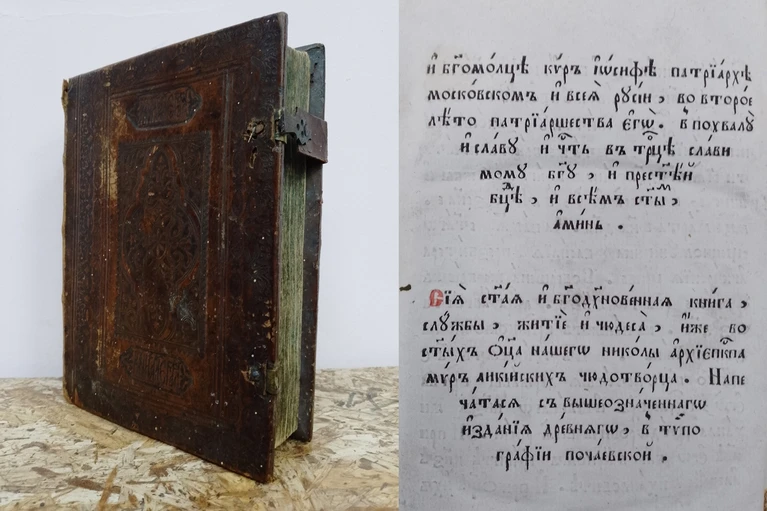 и҆ бг҃омо́лцѣ ку́ръ і҆ѡ́сифѣ патрїа́рхѣ
московскомъ и҆ всеѧ̀ русі́и, во второ́е
лѣ́то патрїа́ршества є҆гѡ̀. в̾ похвалꙋ̀
и҆ сла́вꙋ и҆ че́ть въ трⷪ҇цѣ сла́ви
момꙋ бг҃ꙋ, и҆ прест҃ѣ́й
бцⷣѣ, и҆ всѣ́мъ ст҃ы́мⷨ,
а҆ми́нь.
Сїѧ̀ ст҃а́ѧ и҆ бг҃одꙋ҃нове́ннаѧ кни́га,
слꙋ́жбы, житїѐ и҆ чюдеса̀, и҆́же во
ст҃ы́хъ ѻ҆ц҃а̀ на́шегѡ нико́лы а҆рхїеп҃кпа
мѵ́ръ ликі́йскихъ чюдотво́рца. Напе
ча́тасѧ съ вышеозна́ченнагѡ
и҆зда́нїѧ дре́внѧгѡ, в̾ тѵ́по
гра́фїи поча́евской.